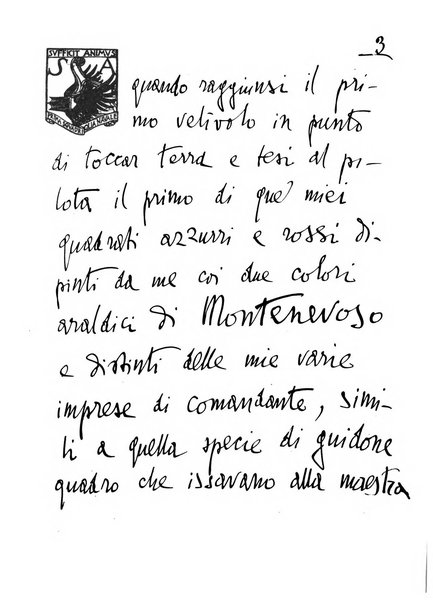 3
SVFFICIT ANIMVS
S A
quando raggiunsi il pri-
mo velivolo in punto
di toccar terra e tesi al pi-
lota il primo di que' miei
quadrati azzurri e rossi di-
pinti da me coi due colori
araldici di Montenevoso
e distinti delle mie varie
imprese di comandante, simi-
li a quella specie di guidone
quadro che issavano alla maestra